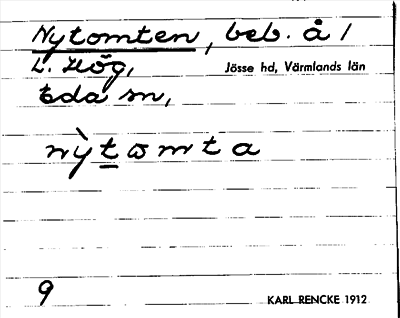 Nytomten, beb. å 1
L. Hög,
Jösse hd, Värmlands län
Eda sn,
nỳt̲ωmta
9
KARL RENCKE 1912